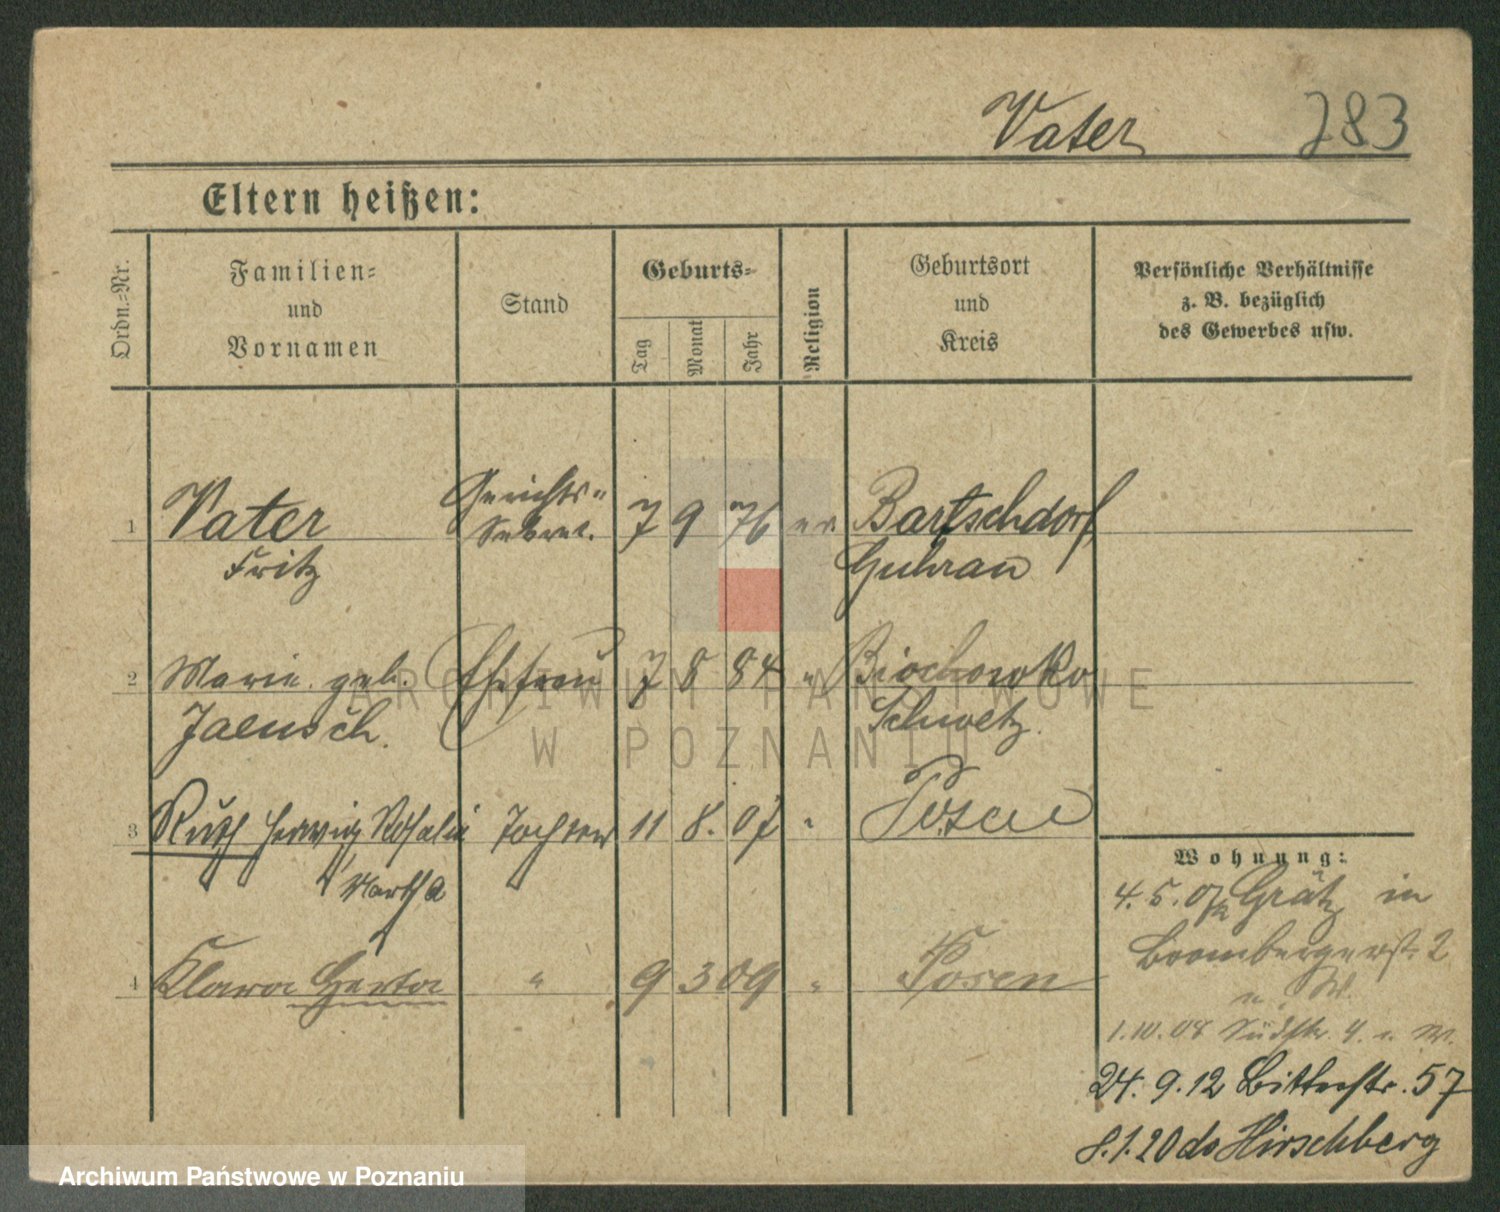 Vater 783
Eltern heißen:
Ordn.-Nr.
Familien-
und
Vornamen
Stand
Geburts-
Tag
Monat
Jahr
Religion
Geburtsort
und
Kreis
Persönliche Verhältnisse
z. B. bezüglich
des Gewerbes usw.
1 Vater Gerichts- 7 9 76 ev. Bartschdorf
Sekret.
Fritz Guhrau
2 Marie geb. Ehefrau 7 8 84 " Biechowko
Jaensch. Schwetz.
3 Ruth Hedwig Rosalie Tochter 11 8. 07 " Posen
Martha
4 Klara Herta " 9 3 09 " Posen
Wohnung:
4. 5. 07 Grätz in
Brombergerstr. 2
u. W.
1.10.08 Südstr. 4. u. W.
24. 9. 12 Bitterstr. 57
8.1.20 do Hirschberg
ARCHIWUM PAŃSTWOWE
W POZNANIU
Archiwum Państwowe w Poznaniu